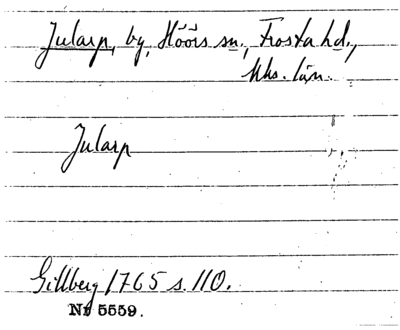 Jularp, by, Höörs sn., Frosta hd.,
Mhs. län.
Jularp
Gillberg 1765 s. 110.
Nr 5559.